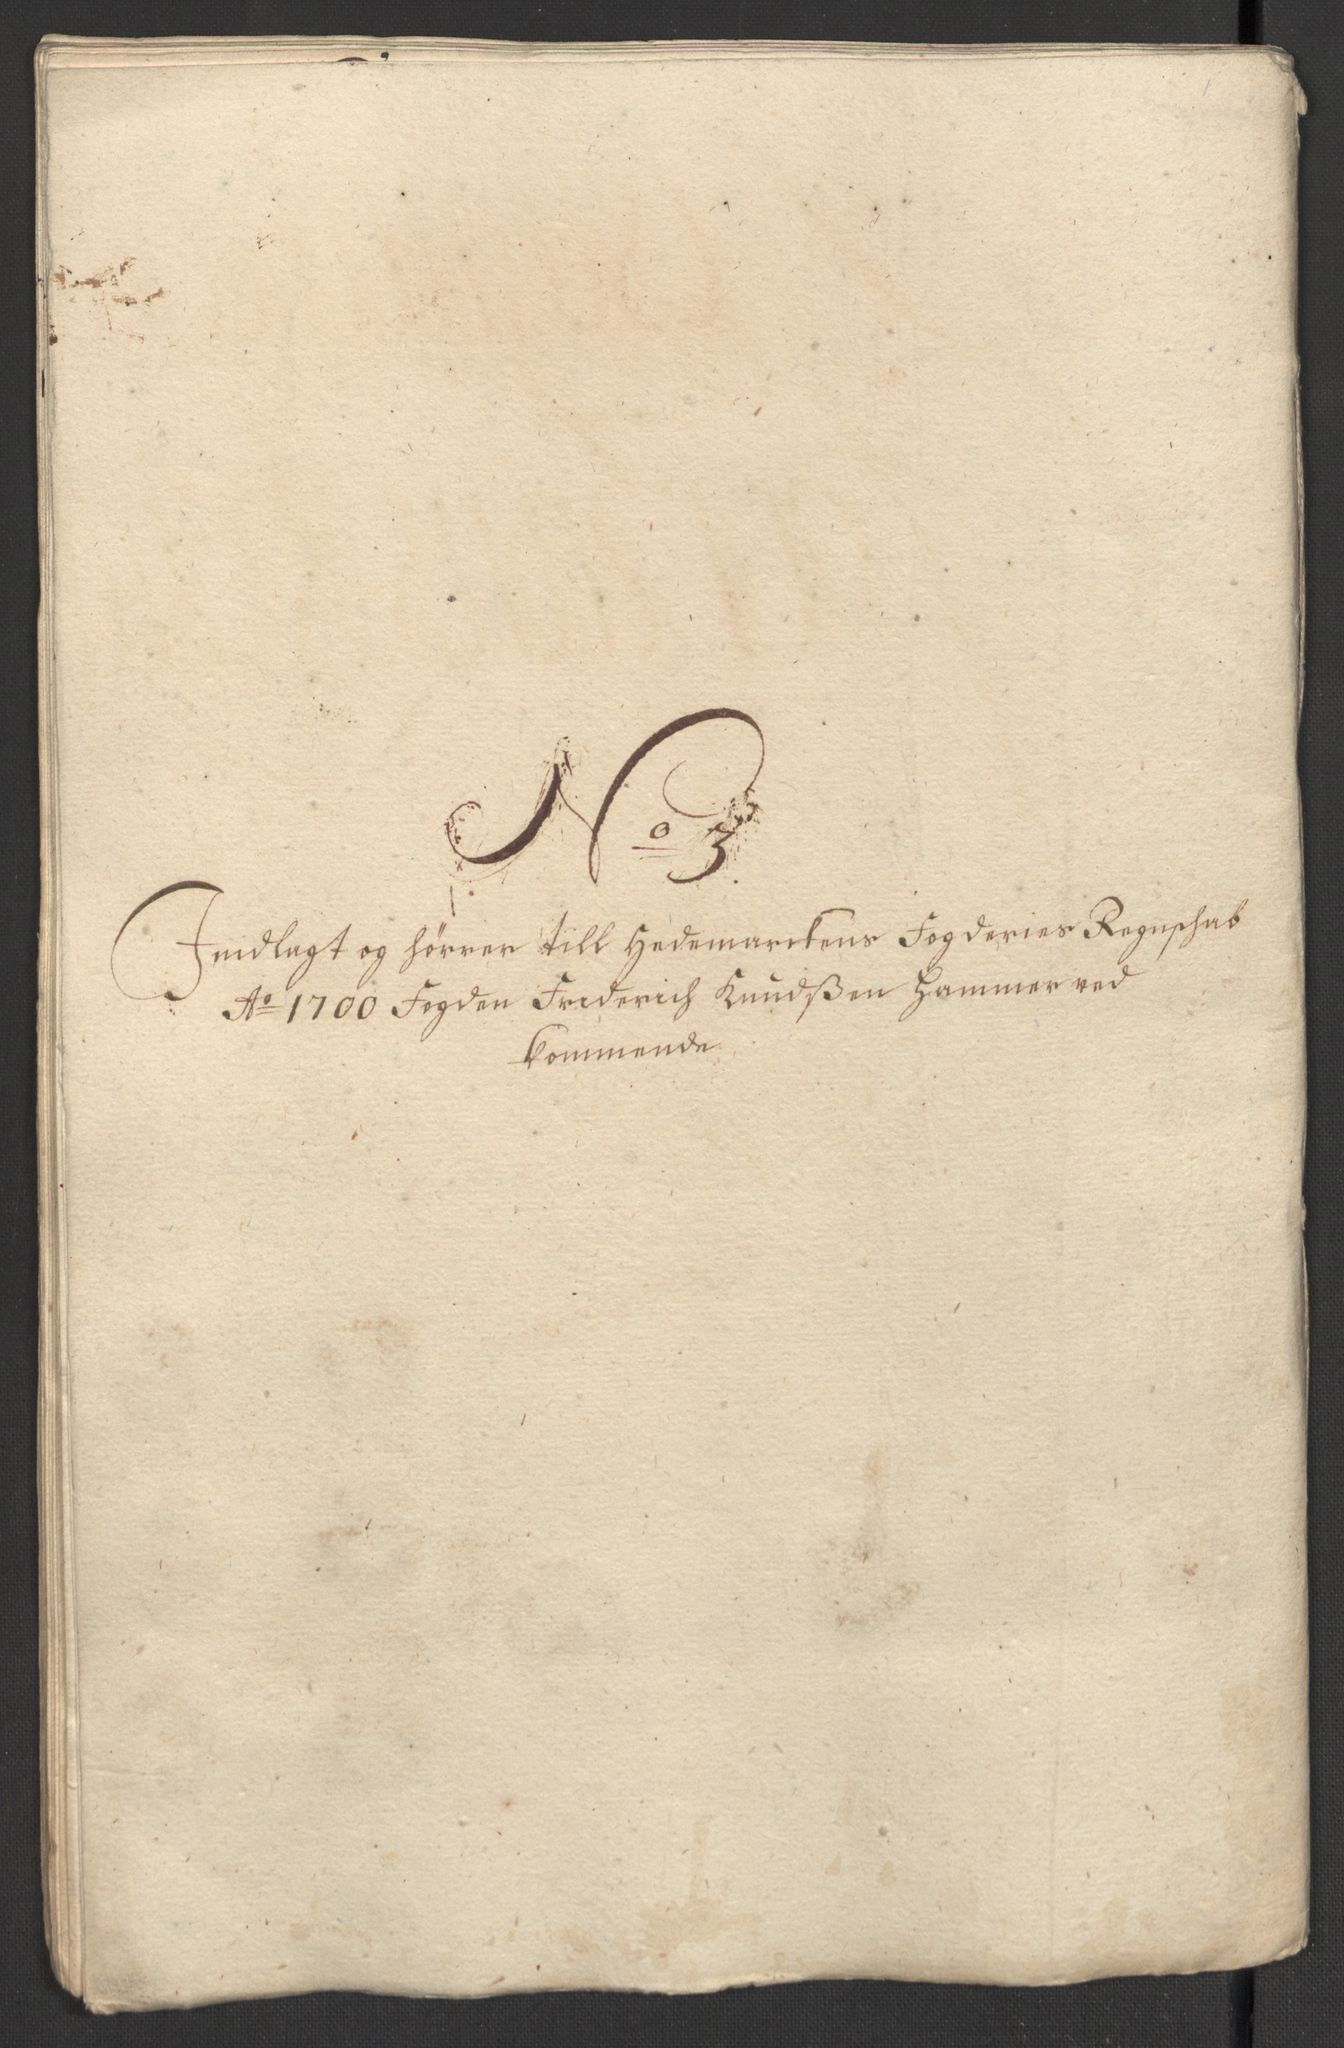 No 3
Indlagt og hörrer till Hedemarckens Fogderies Regnschab
Ao 1700 Fogden Friderich Knudßen Hammer ved
kommende